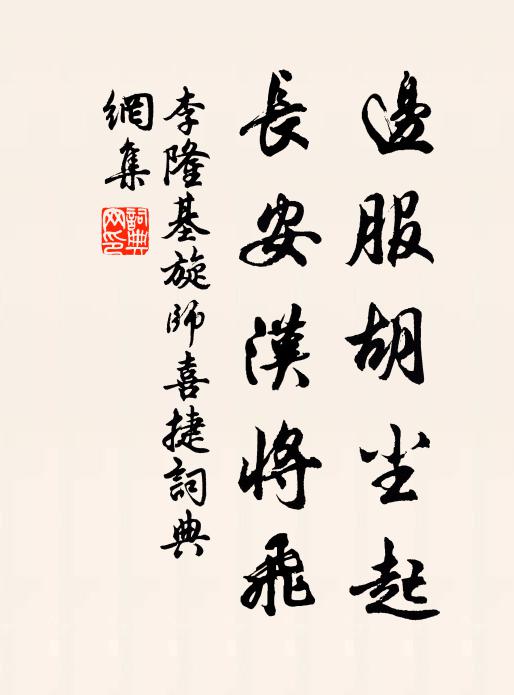 邊服胡尘起
長安漢将飛
李隆基旋師喜捷詞典
網集
詞典
网印